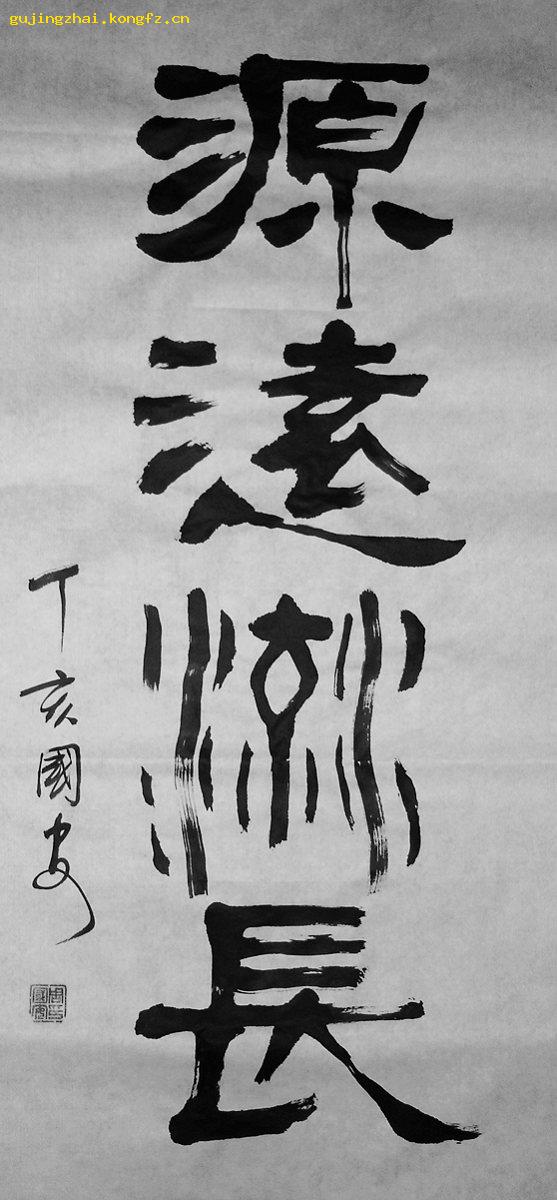 gujingzhai.kongfz.cn
源遠流長
丁亥國安